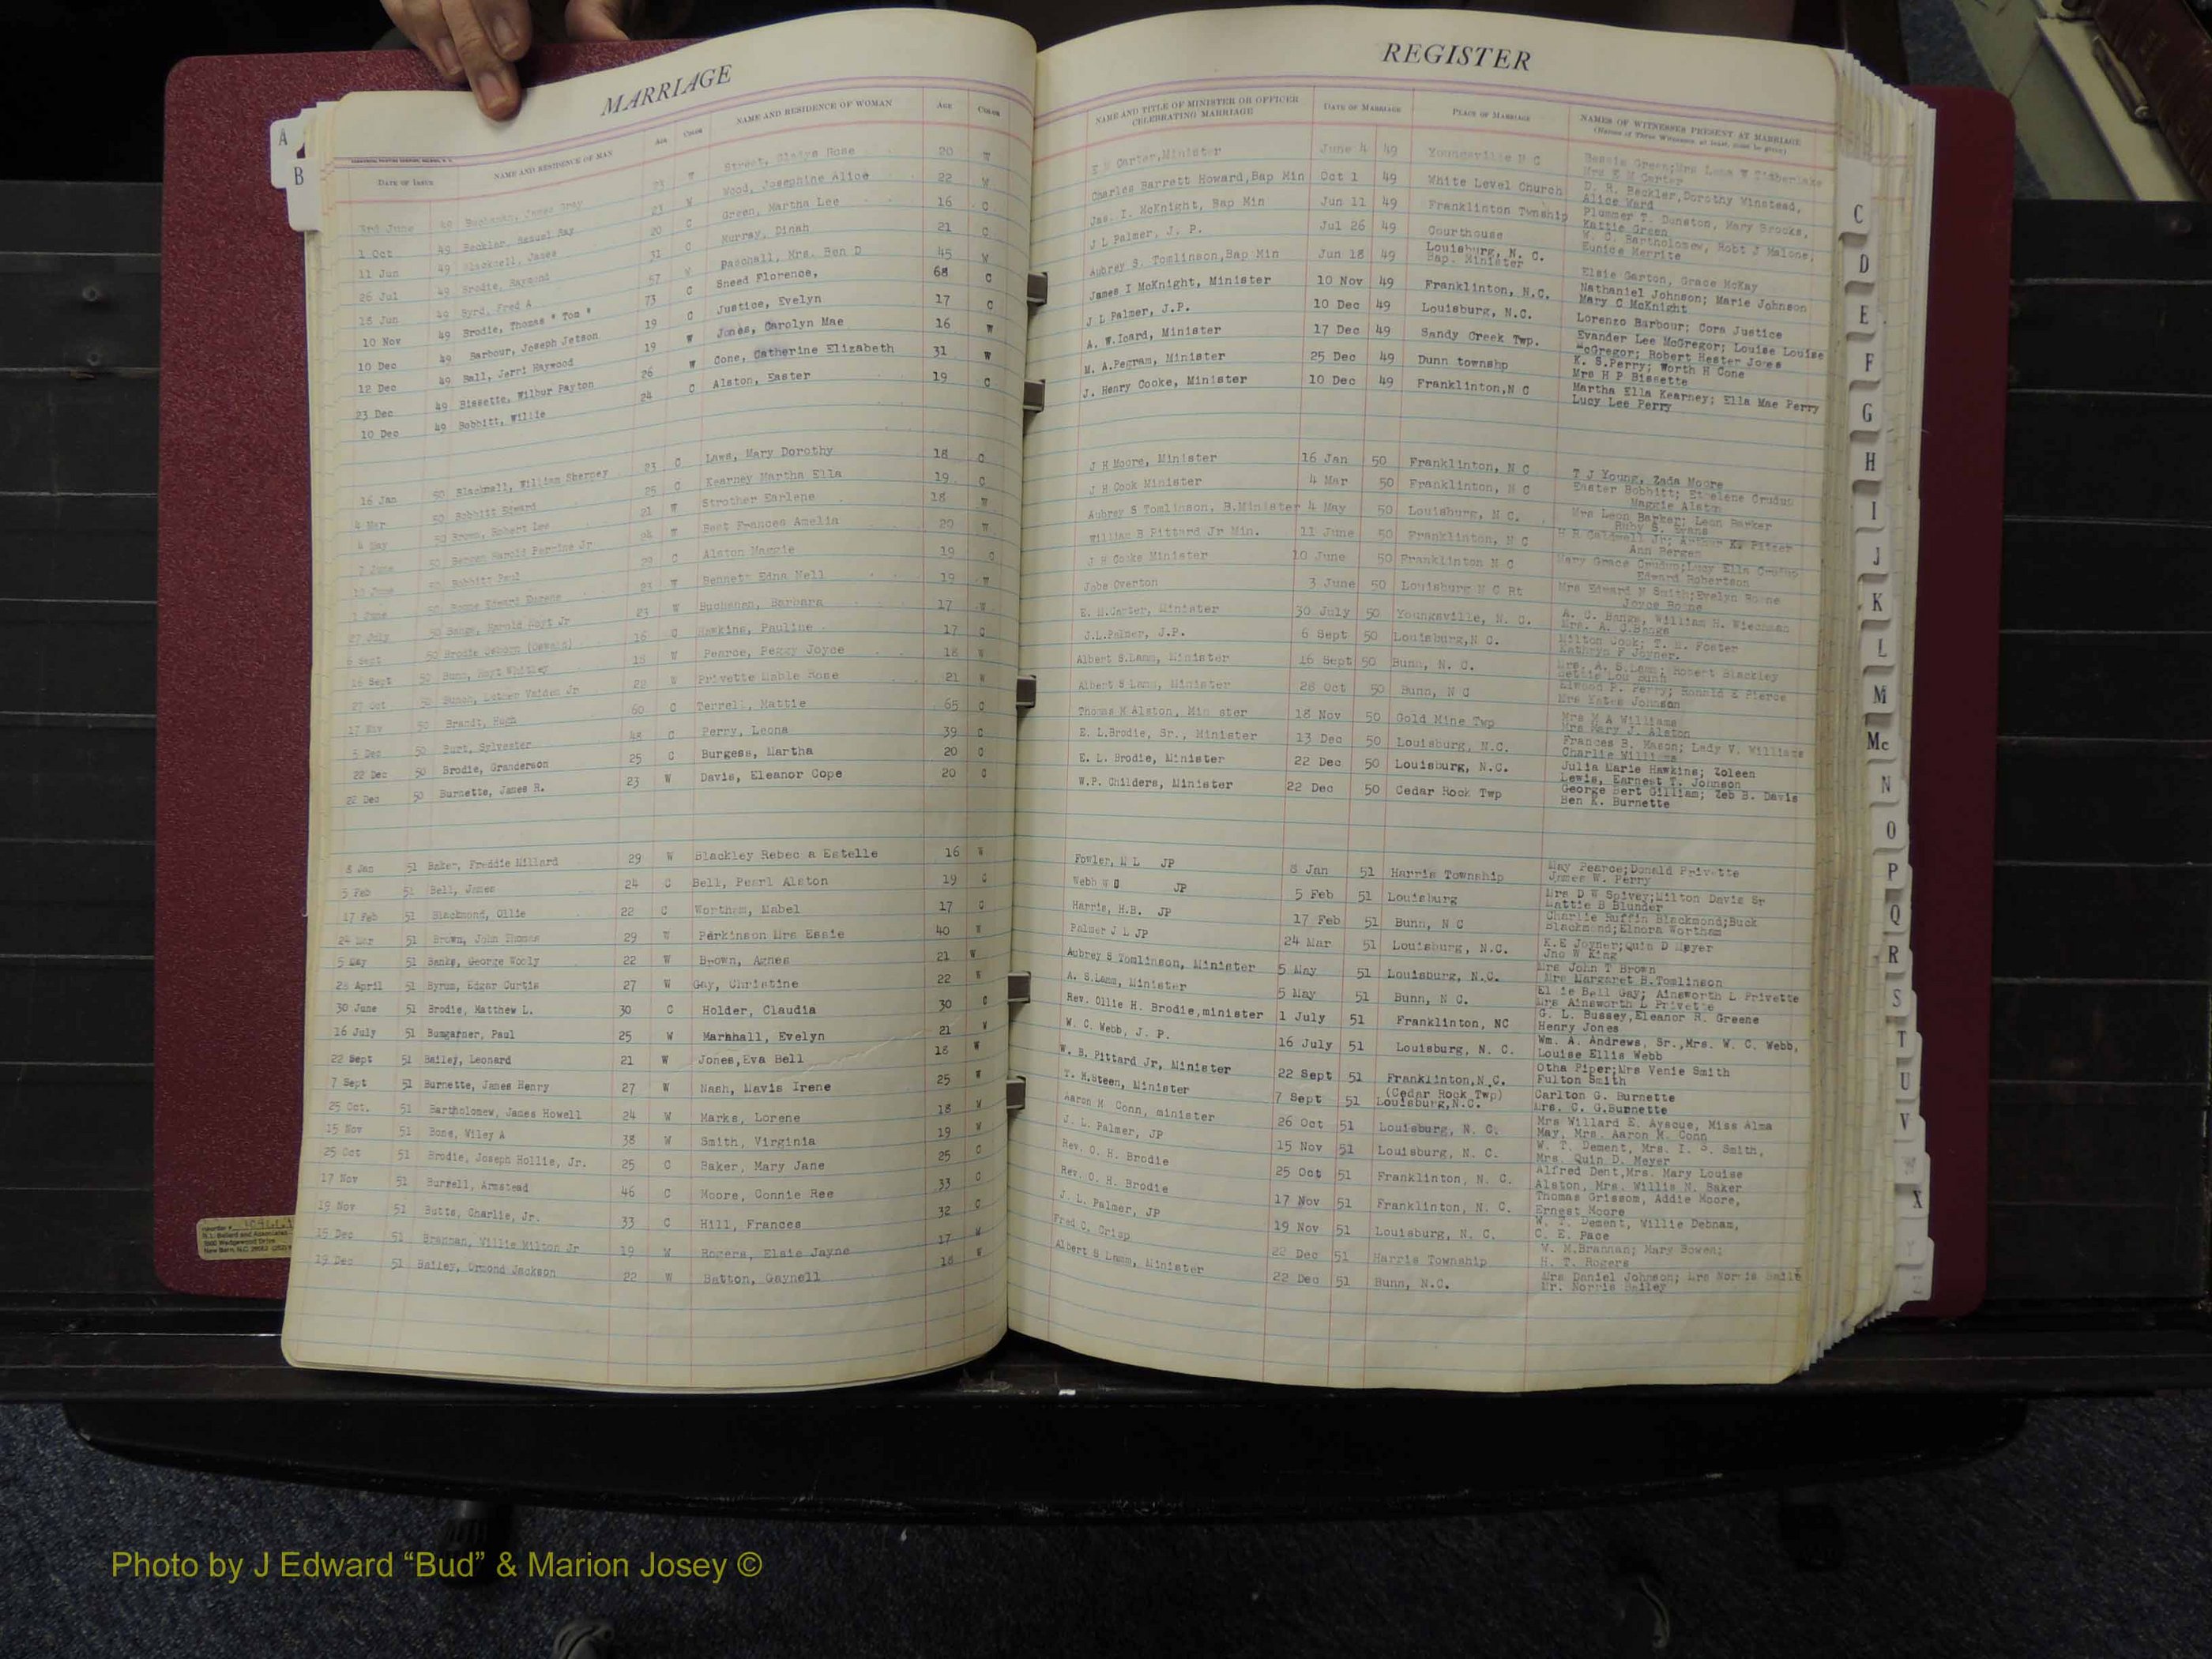 MARRIAGE
DATE OF ISSUE NAME AND RESIDENCE OF MAN AGE COLOR NAME AND RESIDENCE OF WOMAN AGE COLOR
3rd June 49 James Gray 23 W Street, Gladys Rose 20 W
1 Oct 49 Beckler, Samuel Ray 23 W Wood, Josephine Alice 22 W
11 Jun 49 Blacknell, James 20 C Green, Martha Lee 16 C
26 Jul 49 Brodie, Raymond 31 C Murray, Dinah 21 C
18 Jun 49 Byrd, Fred A 57 W Paschall, Mrs. Ben D 45 W
10 Nov 49 Brodie, Thomas " Tom " 73 C Sneed Florence, 68 C
10 Dec 49 Barbour, Joseph Jetson 19 C Justice, Evelyn 17 C
12 Dec 49 Ball, Jerri Haywood 19 W Jones, Carolyn Mae 16 W
23 Dec 49 Bissette, Wilbur Payton 26 W Cone, Catherine Elizabeth 31 W
10 Dec 49 Bobbitt, Willie 24 C Alston, Easter 19 C
16 Jan 50 Blacknell, William Sherney 23 C Laws, Mary Dorothy 18 C
4 Mar 50 Bobbitt Edward 25 C Kearney Martha Ella 19 C
4 May 50 Brown, Robert Lee 21 W Strother Earlene 18 W
7 June 50 Bergen Harold Perrine Jr 24 W Best Frances Amelia 20 W
10 June 50 Bobbitt Paul 29 C Alston Maggie 19 C
1 June 50 Boone Edward Eugene 23 W Bennett Edna Nell 19 W
27 July 50 Bangs, Harold Hoyt Jr 23 W Buchanan, Barbara 17 W
6 Sept 50 Brodie Osborn (Oswald) 16 C Haskins, Pauline 17 C
16 Sept 50 Bunn, Hoyt Whitley 18 W Pearce, Peggy Joyce 18 W
27 Oct 50 Bunch, Luther Vaiden Jr 28 W Privette Mable Rose 21 W
17 Nov 50 Brandt, Hugh 60 C Terrell, Mattie 65 C
5 Dec 50 Burt, Sylvester 48 C Perry, Leona 39 C
22 Dec 50 Brodie, Granderson 25 C Burgess, Martha 20 C
22 Dec 50 Burnette, James R. 23 W Davis, Eleanor Cope 20 C
8 Jan 51 Baker, Freddie Millard 29 W Blackley Rebec a Estelle 16 W
5 Feb 51 Bell, James 24 C Bell, Pearl Alston 19 C
17 Feb 51 Blackmond, Ollie 22 C Wortham, Mabel 17 C
24 Mar 51 Brown, John Thomas 29 W Parkinson Mrs Essie 40 W
5 May 51 Banks, George Wooly 22 W Brown, Agnes 21 W
28 April 51 Byrum, Edgar Curtis 27 W Gay, Christine 22 W
30 June 51 Brodie, Matthew L. 30 C Holder, Claudia 30 C
16 July 51 Bumgarner, Paul 25 W Marshall, Evelyn 21 W
22 Sept 51 Bailey, Leonard 21 W Jones,Eva Bell 18 W
7 Sept 51 Burnette, James Henry 27 W Nash, Mavis Irene 25 W
25 Oct. 51 Bartholomew, James Howell 24 W Marks, Lorene 18 W
15 Nov 51 Bone, Wiley A 38 W Smith, Virginia 19 W
25 Oct 51 Brodie, Joseph Hollie, Jr. 25 C Baker, Mary Jane 25 C
17 Nov 51 Burrell, Armstead 46 C Moore, Connie Ree 33 C
19 Nov 51 Butts, Charlie, Jr. 33 C Hill, Frances 32 C
15 Dec 51 Brannan, Willie Milton Jr 19 W Rogers, Elsie Jayne 17 W
19 Dec 51 Bailey, Ormond Jackson 22 W Batton, Gaynell 18 W
REGISTER
NAME AND TITLE OF MINISTER OR OFFICER CELEBRATING MARRIAGE DATE OF MARRIAGE PLACE OF MARRIAGE NAMES OF WITNESSES PRESENT AT MARRIAGE
(Names of Three Witnesses, at least, must be given)
E M Carter,Minister June 4 49 Youngsville N C Bessie Green;Mrs Lena W Timberlake
Mrs E M Carter
Charles Barrett Howard,Bap Min Oct 1 49 White Level Church D. R. Beckler,Dorothy Winstead,
Alice Ward
Jas. I. McKnight, Bap Min Jun 11 49 Franklinton Twnship Plummer T. Dunston, Mary Brooks,
Kattie Green
J L Palmer, J. P. Jul 26 49 Courthouse W. C. Bartholomew, Robt J Malone,
Eunice Merrite
Aubrey S. Tomlinson,Bap Min Jun 18 49 Louisburg, N. C.
Bap. Minister Elsie Garton, Grace McKay
James I McKnight, Minister 10 Nov 49 Franklinton, N.C. Nathaniel Johnson; Marie Johnson
Mary C McKnight
J L Palmer, J.P. 10 Dec 49 Louisburg, N.C. Lorenzo Barbour; Cora Justice
A. W.Icard, Minister 17 Dec 49 Sandy Creek Twp. Evander Lee McGregor; Louise Louise
McGregor; Robert Hester Jones
M. A.Pegram, Minister 25 Dec 49 Dunn townshp K. S.Perry; Worth H Cone
Mrs H P Bissette
J. Henry Cooke, Minister 10 Dec 49 Franklinton,N C Martha Ella Kearney; Ella Mae Perry
Lucy Lee Perry
J H Moore, Minister 16 Jan 50 Franklinton, N C T J Young, Zada Moore
J H Cook Minister 4 Mar 50 Franklinton, N C Easter Bobbitt; Ethelene Crudup
Maggie Alston
Aubrey S Tomlinson, B.Minister 4 May 50 Louisburg, N C. Mrs Leon Barker; Leon Barker
Ruby S. Evans
William B Pittard Jr Min. 11 June 50 Franklinton, N C H R Caldwell Jr; Arthur K. Pitzer
Ann Bergen
J H Cooke Minister 10 June 50 Franklinton N C Mary Grace Crudup;Lucy Ella Crudup
Edward Robertson
Jobe Overton 3 June 50 Louisburg N C Rt Mrs Edward N Smith;Evelyn Boone
Joyce Boone
E. M.Carter, Minister 30 July 50 Youngsville, N. C. A. C. Bangs, William H. Wiechman
Mrs. A. C.Bangs
J.L.Palmer, J.P. 6 Sept 50 Louisburg,N C. Milton Cook; T. M. Foster
Kathryn F Joyner.
Albert S.Lamm, Minister 16 Sept 50 Bunn, N. C. Mrs. A. S.Lamm; Robert Blackley
Bettie Lou Bunn
Albert S Lamm, Minister 28 Oct 50 Bunn, N C Elwood P. Perry; Ronald E Pierce
Mrs Yates Johnson
Thomas M Alston, Min ster 18 Nov 50 Gold Mine Twp Mrs M A Williams
Mrs Mary J. Alston
E. L.Brodie, Sr., Minister 13 Dec 50 Louisburg, N.C. Frances B. Mason; Lady V. Williams
Charlie Williams
E. L. Brodie, Minister 22 Dec 50 Louisburg, N.C. Julia Marie Hawkins; Zoleen
Lewis, Earnest T. Johnson
W.P. Childers, Minister 22 Dec 50 Cedar Rock Twp George Bert Gilliam; Zeb B. Davis
Ben K. Burnette
Fowler, M L JP 8 Jan 51 Harris Township May Pearce;Donald Privette
James W. Perry
Webb W C JP 5 Feb 51 Louisburg Mrs D W Spivey;Milton Davis Sr
Lattie B Blunder
Harris, H.B. JP 17 Feb 51 Bunn, N C Charlie Ruffin Blackmond;Buck
Blackmond;Elnora Wortham
Palmer J L JP 24 Mar 51 Louisburg, N.C. K.E Joyner;Quin D Meyer
Jno W King
Aubrey S Tomlinson, Minister 5 May 51 Louisburg, N.C. Mrs John T Brown
Mrs Margaret B.Tomlinson
A. S.Lamm, Minister 5 May 51 Bunn, N C. El ie Bell Gay; Ainsworth L Privette
Mrs Ainsworth L Privette
Rev. Ollie H. Brodie,minister 1 July 51 Franklinton, NC G. L. Bussey,Eleanor R. Greene
Henry Jones
W. C. Webb, J. P. 16 July 51 Louisburg, N. C. Wm. A. Andrews, Sr.,Mrs. W. C. Webb,
Louise Ellis Webb
W. B. Pittard Jr, Minister 22 Sept 51 Franklinton,N.C. Otha Piper;Mrs Venie Smith
Fulton Smith
T. H.Steen, Minister 7 Sept 51 (Cedar Rock Twp)
Louisburg,N.C. Carlton G. Burnette
Mrs. C. G.Burnette
Aaron M Conn, minister 26 Oct 51 Louisburg, N. C. Mrs Willard E. Ayscue, Miss Alma
May, Mrs. Aaron M. Conn
J. L. Palmer, JP 15 Nov 51 Louisburg, N. C. W. T. Dement, Mrs. I. S. Smith,
Mrs. Quin D. Meyer
Rev. O. H. Brodie 25 Oct 51 Franklinton, N. C. Alfred Dent,Mrs. Mary Louise
Alston, Mrs. Willis N. Baker
Rev. O. H. Brodie 17 Nov 51 Franklinton, N. C. Thomas Grissom, Addie Moore,
Ernest Moore
J. L. Palmer, JP 19 Nov 51 Louisburg, N. C. W. T. Dement, Willie Debnam,
C. E. Pace
Fred C. Crisp 22 Dec 51 Harris Township W. M.Brannan; Mary Bowen;
H. T. Rogers
Albert S Lamm, Minister 22 Dec 51 Bunn, N.C. Mrs Daniel Johnson; Mrs Norris Baile
Mr. Norris Bailey
A
B
C
D
E
F
G
H
I
J
K
L
M
Mc
N
O
P
Q
R
S
T
U
V
X
Y
Photo by J Edward “Bud” & Marion Josey ©